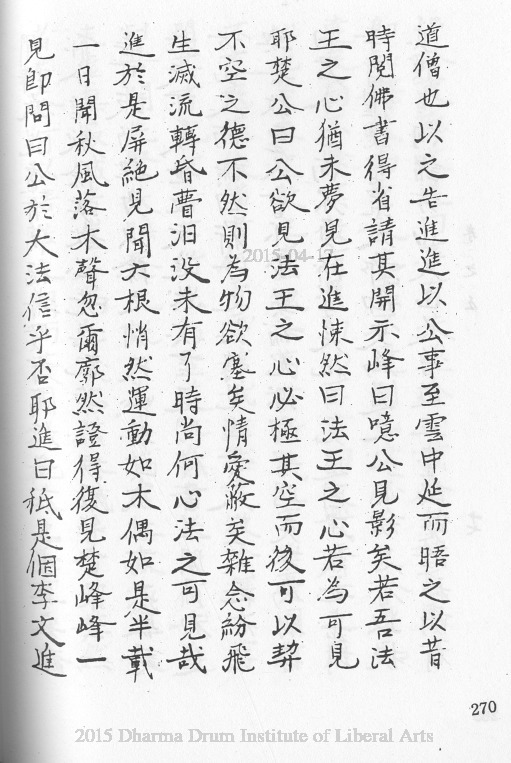 道僧也以之告進進以公事至雲中延而晤之以昔
時閱佛書得省請其開示峰曰噫公見影矣若吾法
王之心猶未夢見在進悚然曰法王之心若為可見
耶楚公曰公欲見法王之心必極其空而後可以契
不空之德不然則為物欲塞矣情愛蔽矣雜念紛飛
生滅流轉昏瞢汩没未有了時尚何心法之可見哉
進於是屏絶見聞六根悄然運動如木偶如是半載
一日聞秋風落木聲忽爾廓然證得復見楚峰峰一
見即問曰公於大法信乎否耶進曰秪是個李文進
270
2015-04-17
2015 Dharma Drum Institute of Liberal Arts